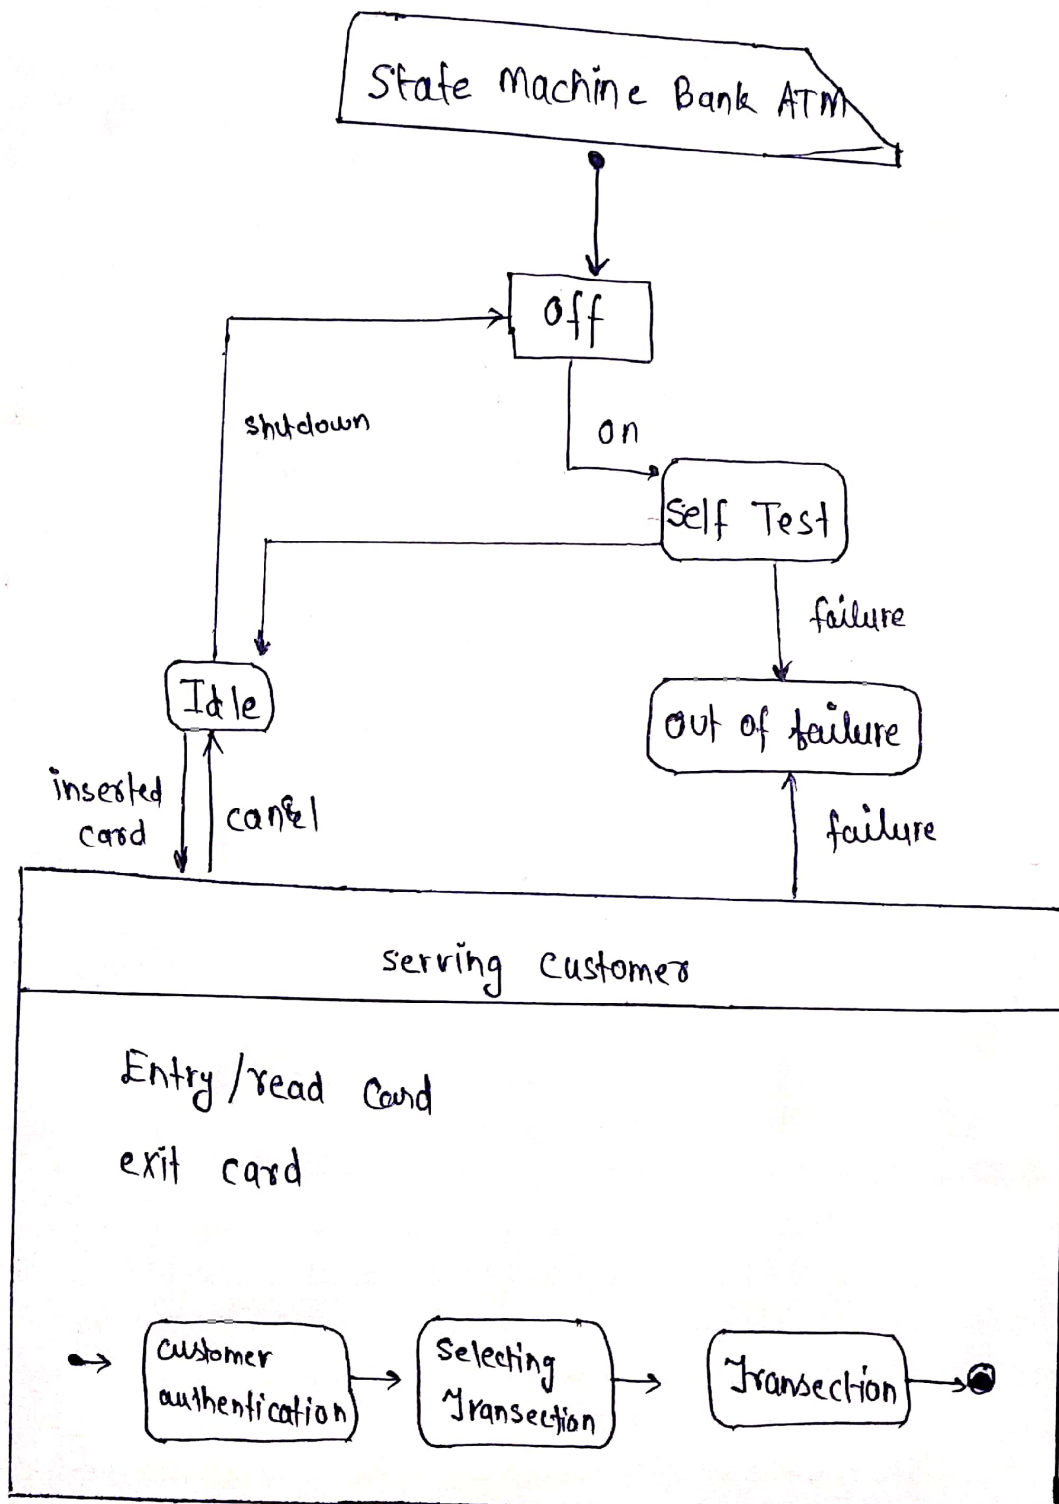 State Machine Bank ATM
Off
shutdown
on
Self Test
failure
Idle
out of failure
inserted
card
cancel
failure
serving customer
Entry/read Card
exit card
customer
authentication
Selecting
Transection
Transection